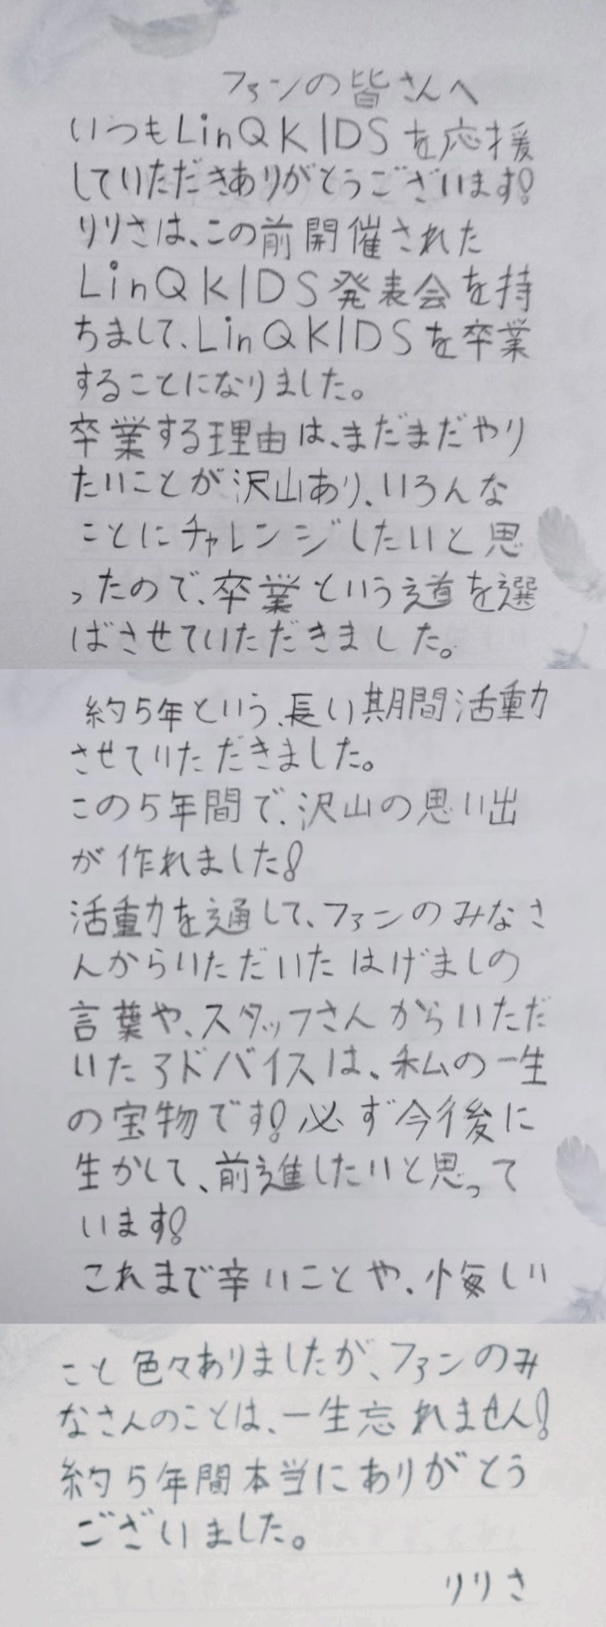 ファンの皆さんへ
いつもLinQ KIDSを応援
していただきありがとうございます!
りりさは、この前開催された
LinQ KIDS発表会を持
ちまして、LinQ KIDSを卒業
することになりました。
卒業する理由は、まだまだやり
たいことが沢山あり、いろんな
ことにチャレンジしたいと思
ったので、卒業という道を選
ばさせていただきました。
約5年という、長い期間活動
させていただきました。
この5年間で、沢山の思い出
が作れました!
活動を通して、ファンのみなさ
んからいただいたはげましの
言葉や、スタッフさんからいただ
いたアドバイスは、私の一生
の宝物です!必ず今後に
生かして、前進したいと思って
います!
これまで辛いことや、悔しい
こと色々ありましたが、ファンのみ
なさんのことは、一生忘れません!
約5年間本当にありがとう
ございました。
りりさ